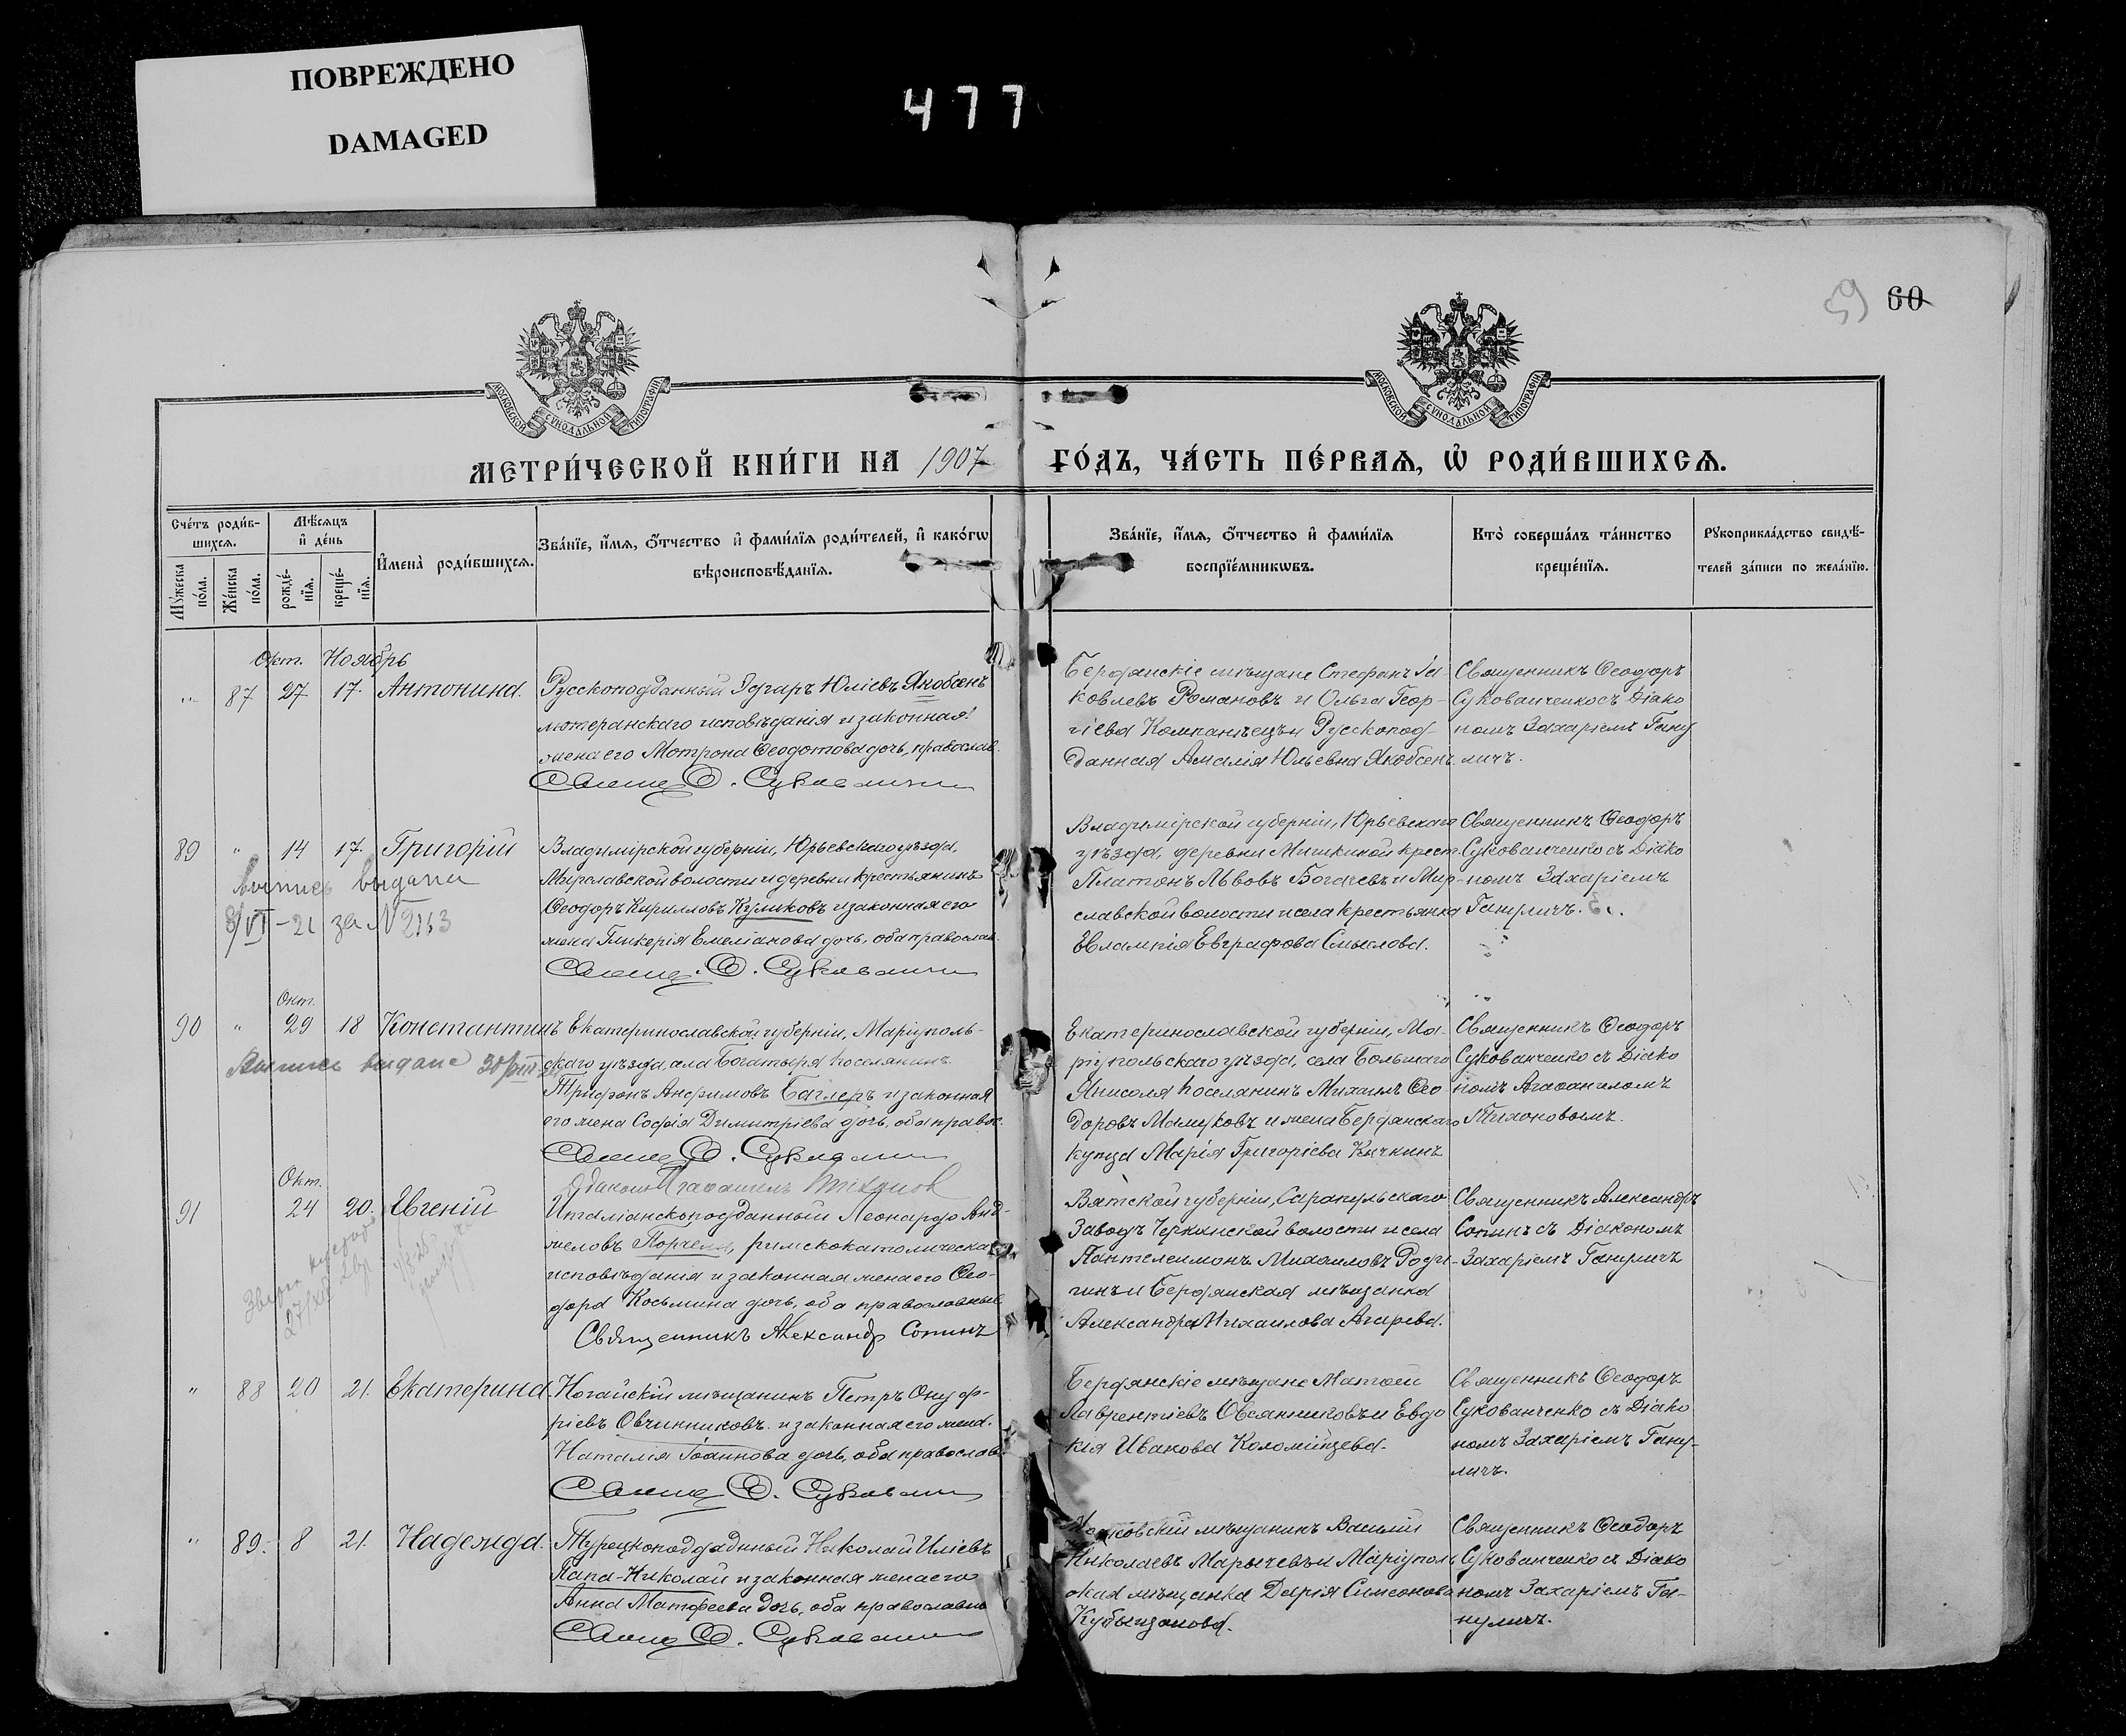 ПОВРЕЖДЕНО
DAMAGED
477
59 60
МОСКОВСКОЙ СѴНОДАЛЬНОЙ ТИПОГРАФІИ
МОСКОВСКОЙ СѴНОДАЛЬНОЙ ТИПОГРАФІИ
МЕТРИ́ЧЕСКОЙ КНИ́ГИ НА 1907 ГО́ДЪ, ЧА́СТЬ ПЕ́РВАѦ, Ѡ҆ РОДИ́ВШИХСѦ.
Сче́тъ роди́в-
шихсѧ.
Мꙋ́жеска по́ла.
Же́нска по́ла.
Мѣ́сѧцъ
и҆ де́нь
рожде́-
нїѧ.
креще́-
нїѧ.
И҆мена̀ роди́вшихсѧ.
Зва́нїе, и҆́мѧ, ѻ҆́тчество и҆ фами́лїѧ роди́телей, и҆ како́гѡ
вѣроисповѣ́данїѧ.
Зва́нїе, и҆́мѧ, ѻ҆́тчество и҆ фами́лїѧ
воспрїе́мникѡвъ.
Кто̀ соверша́лъ та́инство
креще́нїѧ.
Рꙋкоприкла́дство свидѣ́-
телей за́писи по жела́нїю.
Окт. Ноябрь
" 87 27 17. Антонина.
Русскоподданный Эдгаръ Юліевъ Якобсенъ
лютеранскаго исповѣданія и законная
жена его Мотрона Ѳеодотова дочь, православ.
Бердянскіе мѣщане Стефанъ Іа-
ковлевъ Романовъ и Ольга Геор-
гіева Компаніецъ и Русскопод-
данная Амалія Юльевна Якобсенъ
Священникъ Ѳеодоръ
Сукованченко съ Діако
номъ Захаріемъ Гану
личъ.
89 " 14 17. Григорій
Выпись выдана
8/VI - 21 за N 2163
Владимірской губерніи, Юрьевскаго уѣзда,
Мирславской волости и деревни крестьянинъ
Ѳеодоръ Кирилловъ Куликовъ и законная его
жена Гликерія Емеліанова дочь, оба православ.
Владимірской губерніи, Юрьевскаго
уѣзда, деревни Мишкиной крест.
Платонъ Львовъ Богачевъ и Мир-
славской волости и села крестьянка
Евлампія Евграфова Смыслова.
Священникъ Ѳеодоръ
Сукованченко съ Діако
номъ Захаріемъ
Гануличъ.
Окт.
90 " 29 18 Константинъ
Выпись выдана 30/VIII
Екатеринославской губерніи, Маріуполь-
скаго уѣзда, села Богатыря поселянинъ
Трифонъ Анфимовъ Баглеръ и законная
его жена Софія Димитріева дочь, оба правос.
Екатеринославской губерніи, Ма-
ріупольскаго уѣзда, села Большаго
Янисоля поселянинъ Михаилъ Ѳео
доровъ Мамуковъ и жена Бердянскаго
купца Марія Григоріева Кичкинъ
Священникъ Ѳеодоръ
Сукованченко съ Діако
номъ Агаѳангеломъ
Тихоновымъ.
Окт.
91 24 20. Евгеній
Италіанскоподданный Леонардо Анд-
желовъ, римскокатолическа
исповѣданія и законная жена его Ѳео-
дора Косьмина дочь, оба православные
Священникъ Александръ Сопинъ
Вятской губерніи, Сарапульскаго
Пантелеимонъ Михаиловъ Роди-
гинъ и Бердянская мѣщанка
Александра Михаилова Агарева.
Священникъ Александръ
Сопинъ съ Діакономъ
Захаріемъ Гануличъ
" 88 20 21. Екатерина.
Ногайскій мѣщанинъ Петръ Онуф-
ріевъ Овчинниковъ и законная его жена
Наталія Іоаннова дочь, оба православ.
Бердянскіе мѣщане Матѳей
Лаврентіевъ Овсянниковъ и Евдо
кія Иванова Коломійцева.
Священникъ Ѳеодоръ
Сукованченко съ Діако
номъ Захаріемъ Гану-
личъ.
" 89. 8 21. Надежда.
Турецкоподданный Николай Иліевъ
Папа-Николай и законная жена его
Анна Матѳеева дочь, оба православн
мѣщанинъ Василій
Николаевъ Марычевъ и Маріуполь
ская мѣщанка Дарія Симеонова
Священникъ Ѳеодоръ
Сукованченко съ Діако
номъ Захаріемъ Га-
нуличъ.